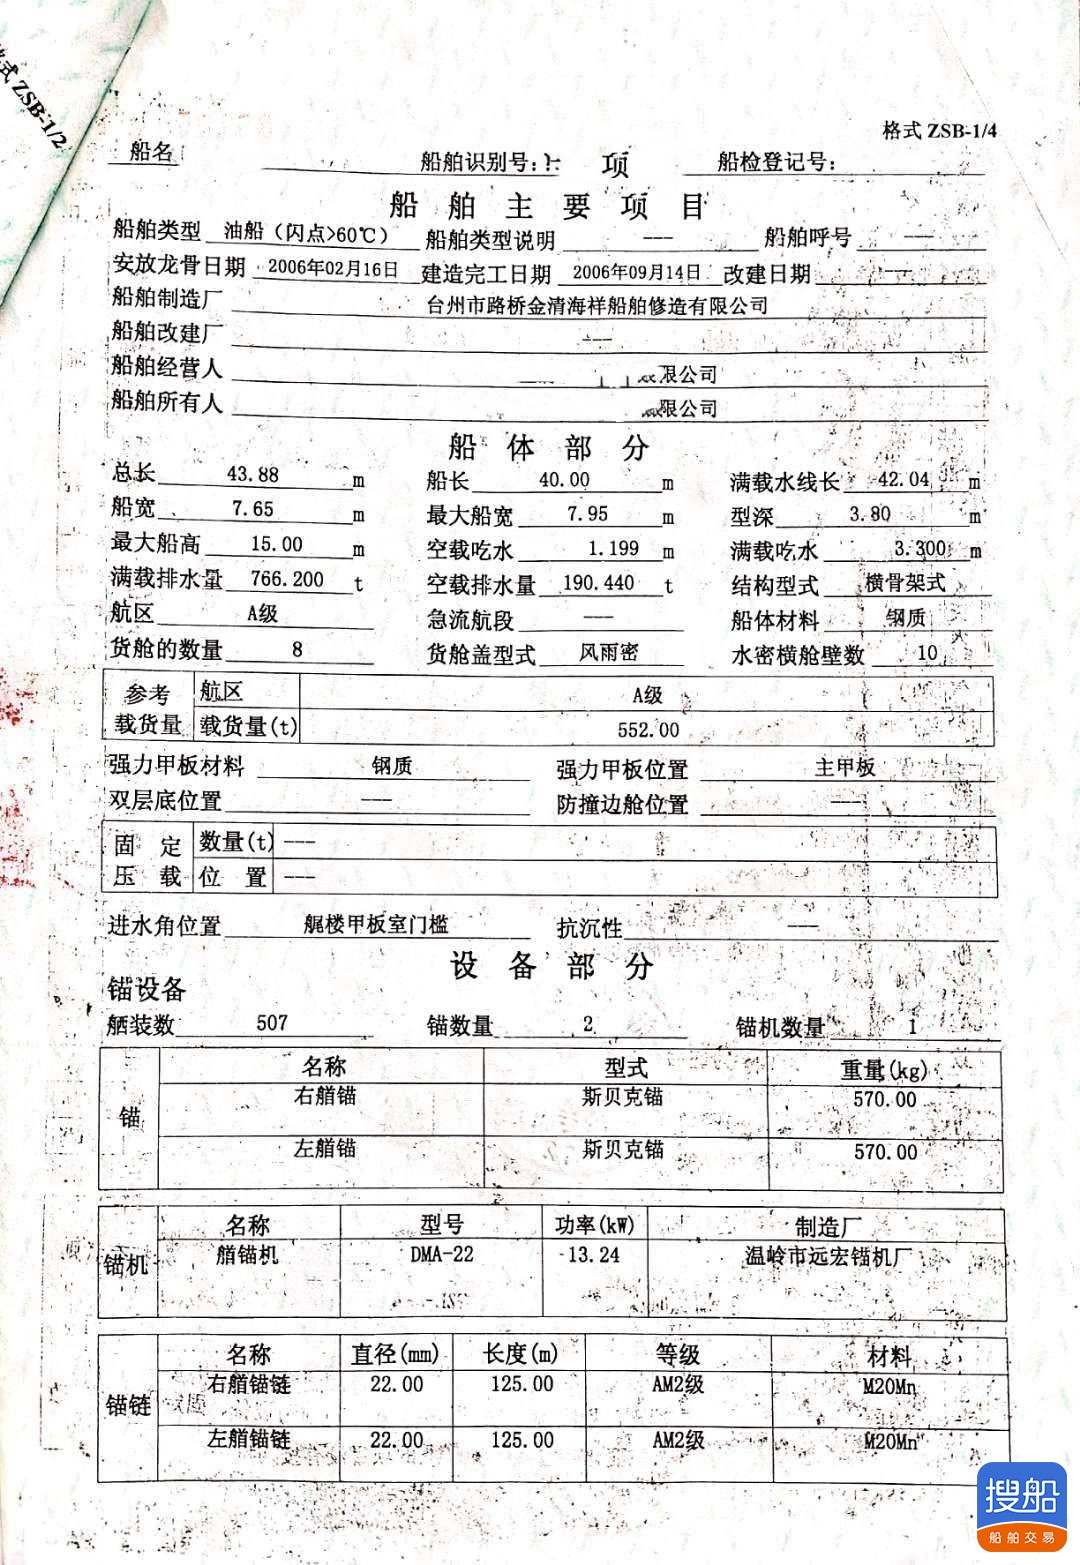 格式 ZSB-1/2
格式 ZSB-1/4
船名 船舶识别号: 项 船检登记号:
船舶主要项目
船舶类型 油船（闪点>60℃） 船舶类型说明 --- 船舶呼号 ---
安放龙骨日期 2006年02月16日 建造完工日期 2006年09月14日 改建日期 ---
船舶制造厂 台州市路桥金清海祥船舶修造有限公司
船舶改建厂 ---
船舶经营人 限公司
船舶所有人 限公司
船体部分
总长 43.88 m 船长 40.00 m 满载水线长 42.04 m
船宽 7.65 m 最大船宽 7.95 m 型深 3.80 m
最大船高 15.00 m 空载吃水 1.199 m 满载吃水 3.300 m
满载排水量 766.200 t 空载排水量 190.440 t 结构型式 横骨架式
航区 A级 急流航段 --- 船体材料 钢质
货舱的数量 8 货舱盖型式 风雨密 水密横舱壁数 10
参考载货量 航区 A级
载货量(t) 552.00
强力甲板材料 钢质 强力甲板位置 主甲板
双层底位置 --- 防撞边舱位置 ---
固定压载 数量(t) ---
位置 ---
进水角位置 艉楼甲板室门槛 抗沉性 ---
设备部分
锚设备
舾装数 507 锚数量 2 锚机数量 1
锚 名称 型式 重量(kg)
右艏锚 斯贝克锚 570.00
左艏锚 斯贝克锚 570.00
锚机 名称 型号 功率(kW) 制造厂
艏锚机 DMA-22 13.24 温岭市远宏锚机厂
锚链 名称 直径(mm) 长度(m) 等级 材料
右艏锚链 22.00 125.00 AM2级 M20Mn
左艏锚链 22.00 125.00 AM2级 M20Mn
搜船
船舶交易